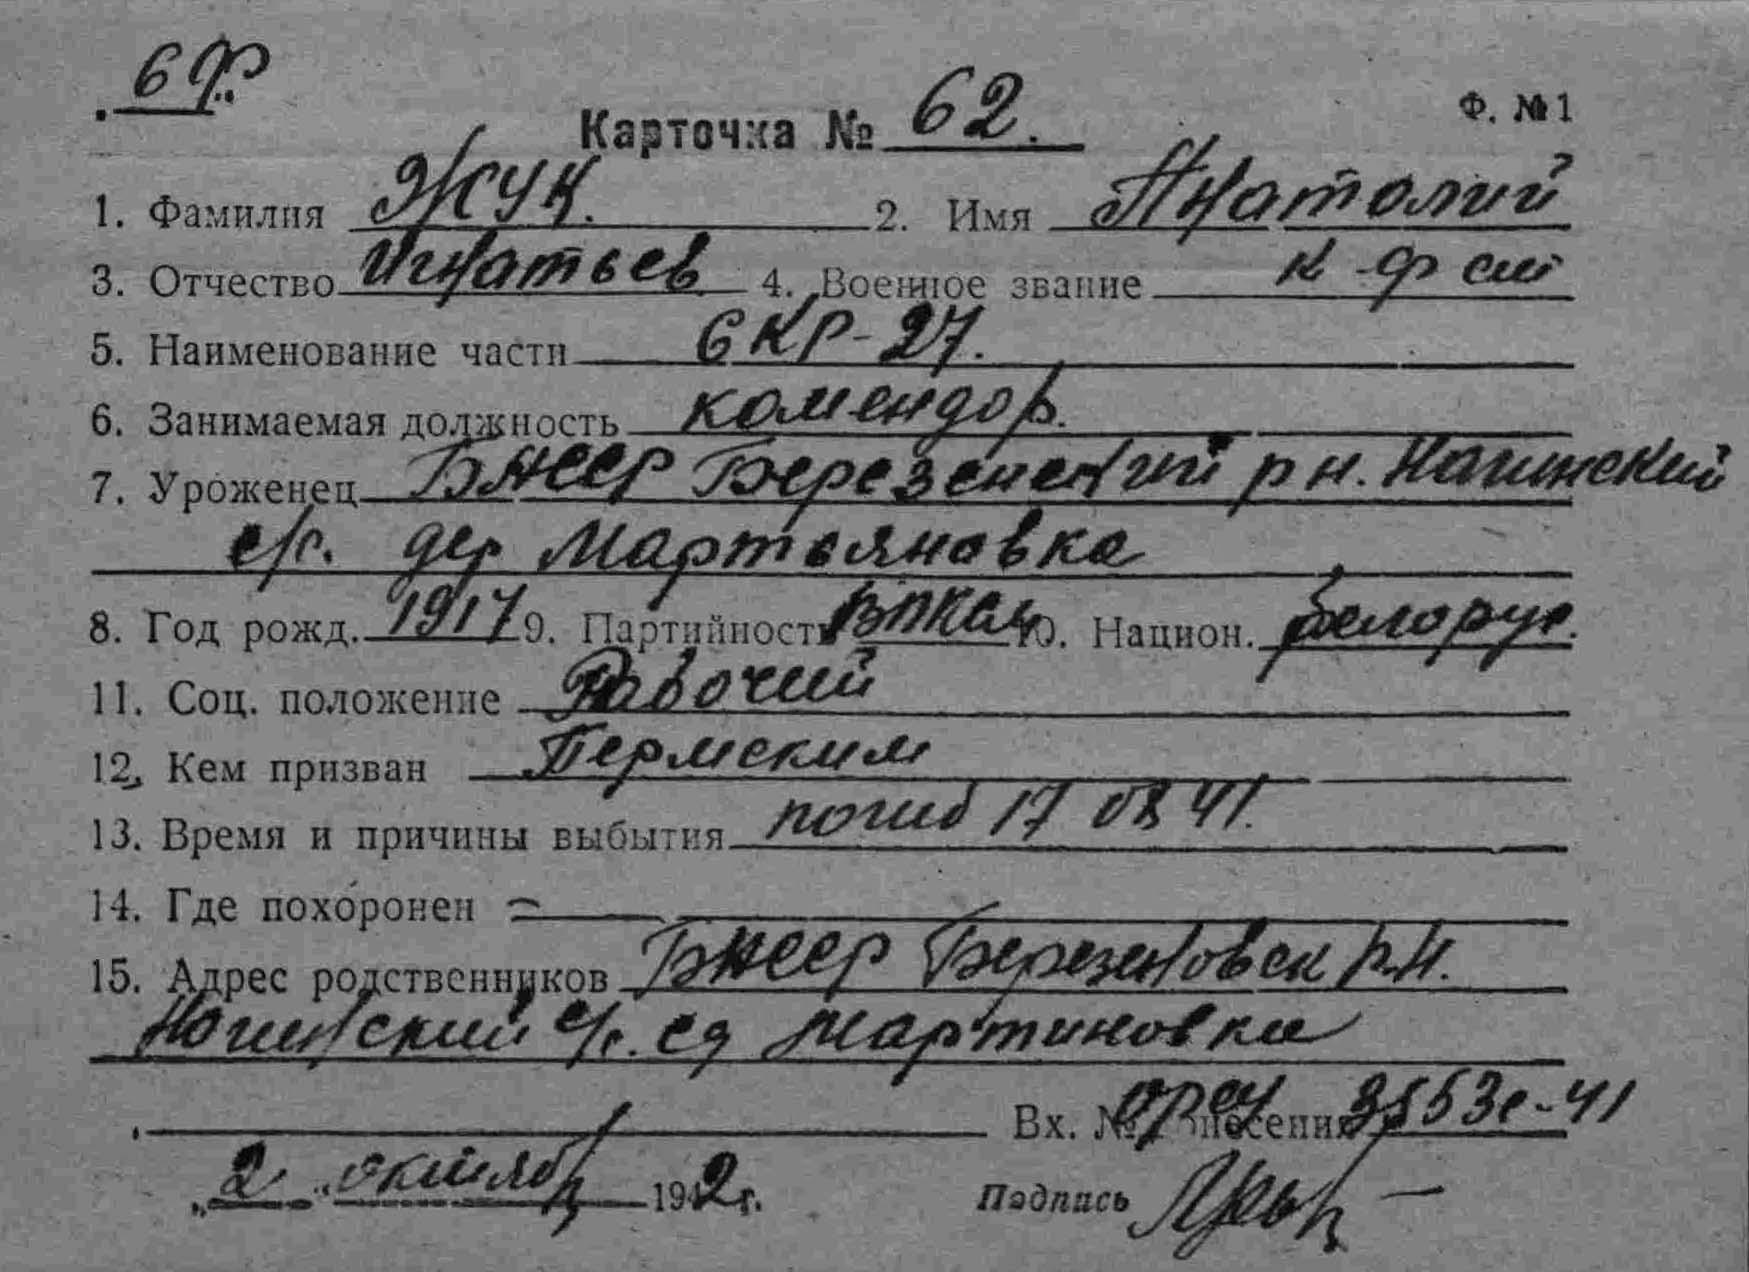 6 Ф.
Ф. № 1
Карточка № 62.
1. Фамилия Жук. 2. Имя Анатолий
3. Отчество Игнатьев 4. Военное звание к-ф см
5. Наименование части СКР-27.
6. Занимаемая должность комендор.
7. Уроженец БССР Березенский р н.
с/с. дер Мартьяновка
8. Год рожд. 1917 9. Партийность ВЛКСМ 10. Национ. белорус.
11. Соц. положение Рабочий
12. Кем призван Пермским
13. Время и причины выбытия погиб 17 08 41.
14. Где похоронен =
15. Адрес родственников БССР Березеновск р.н.
с/с. сд Мартиновка
Вх. № донесения
„2" октябр 1942 г. Подпись